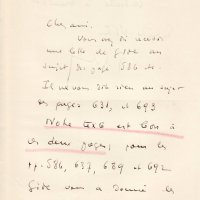 Cher ami.
Vous ai dit aussi
une lettre de Gide au
sujet des pages 586 etc.
Je ne vous dit rien au sujet
des pages 631, et 693
Notre texte est bon à
ces deux pages, pour les
pp. 586, 637, 689 et 692
Gide vous a donné les